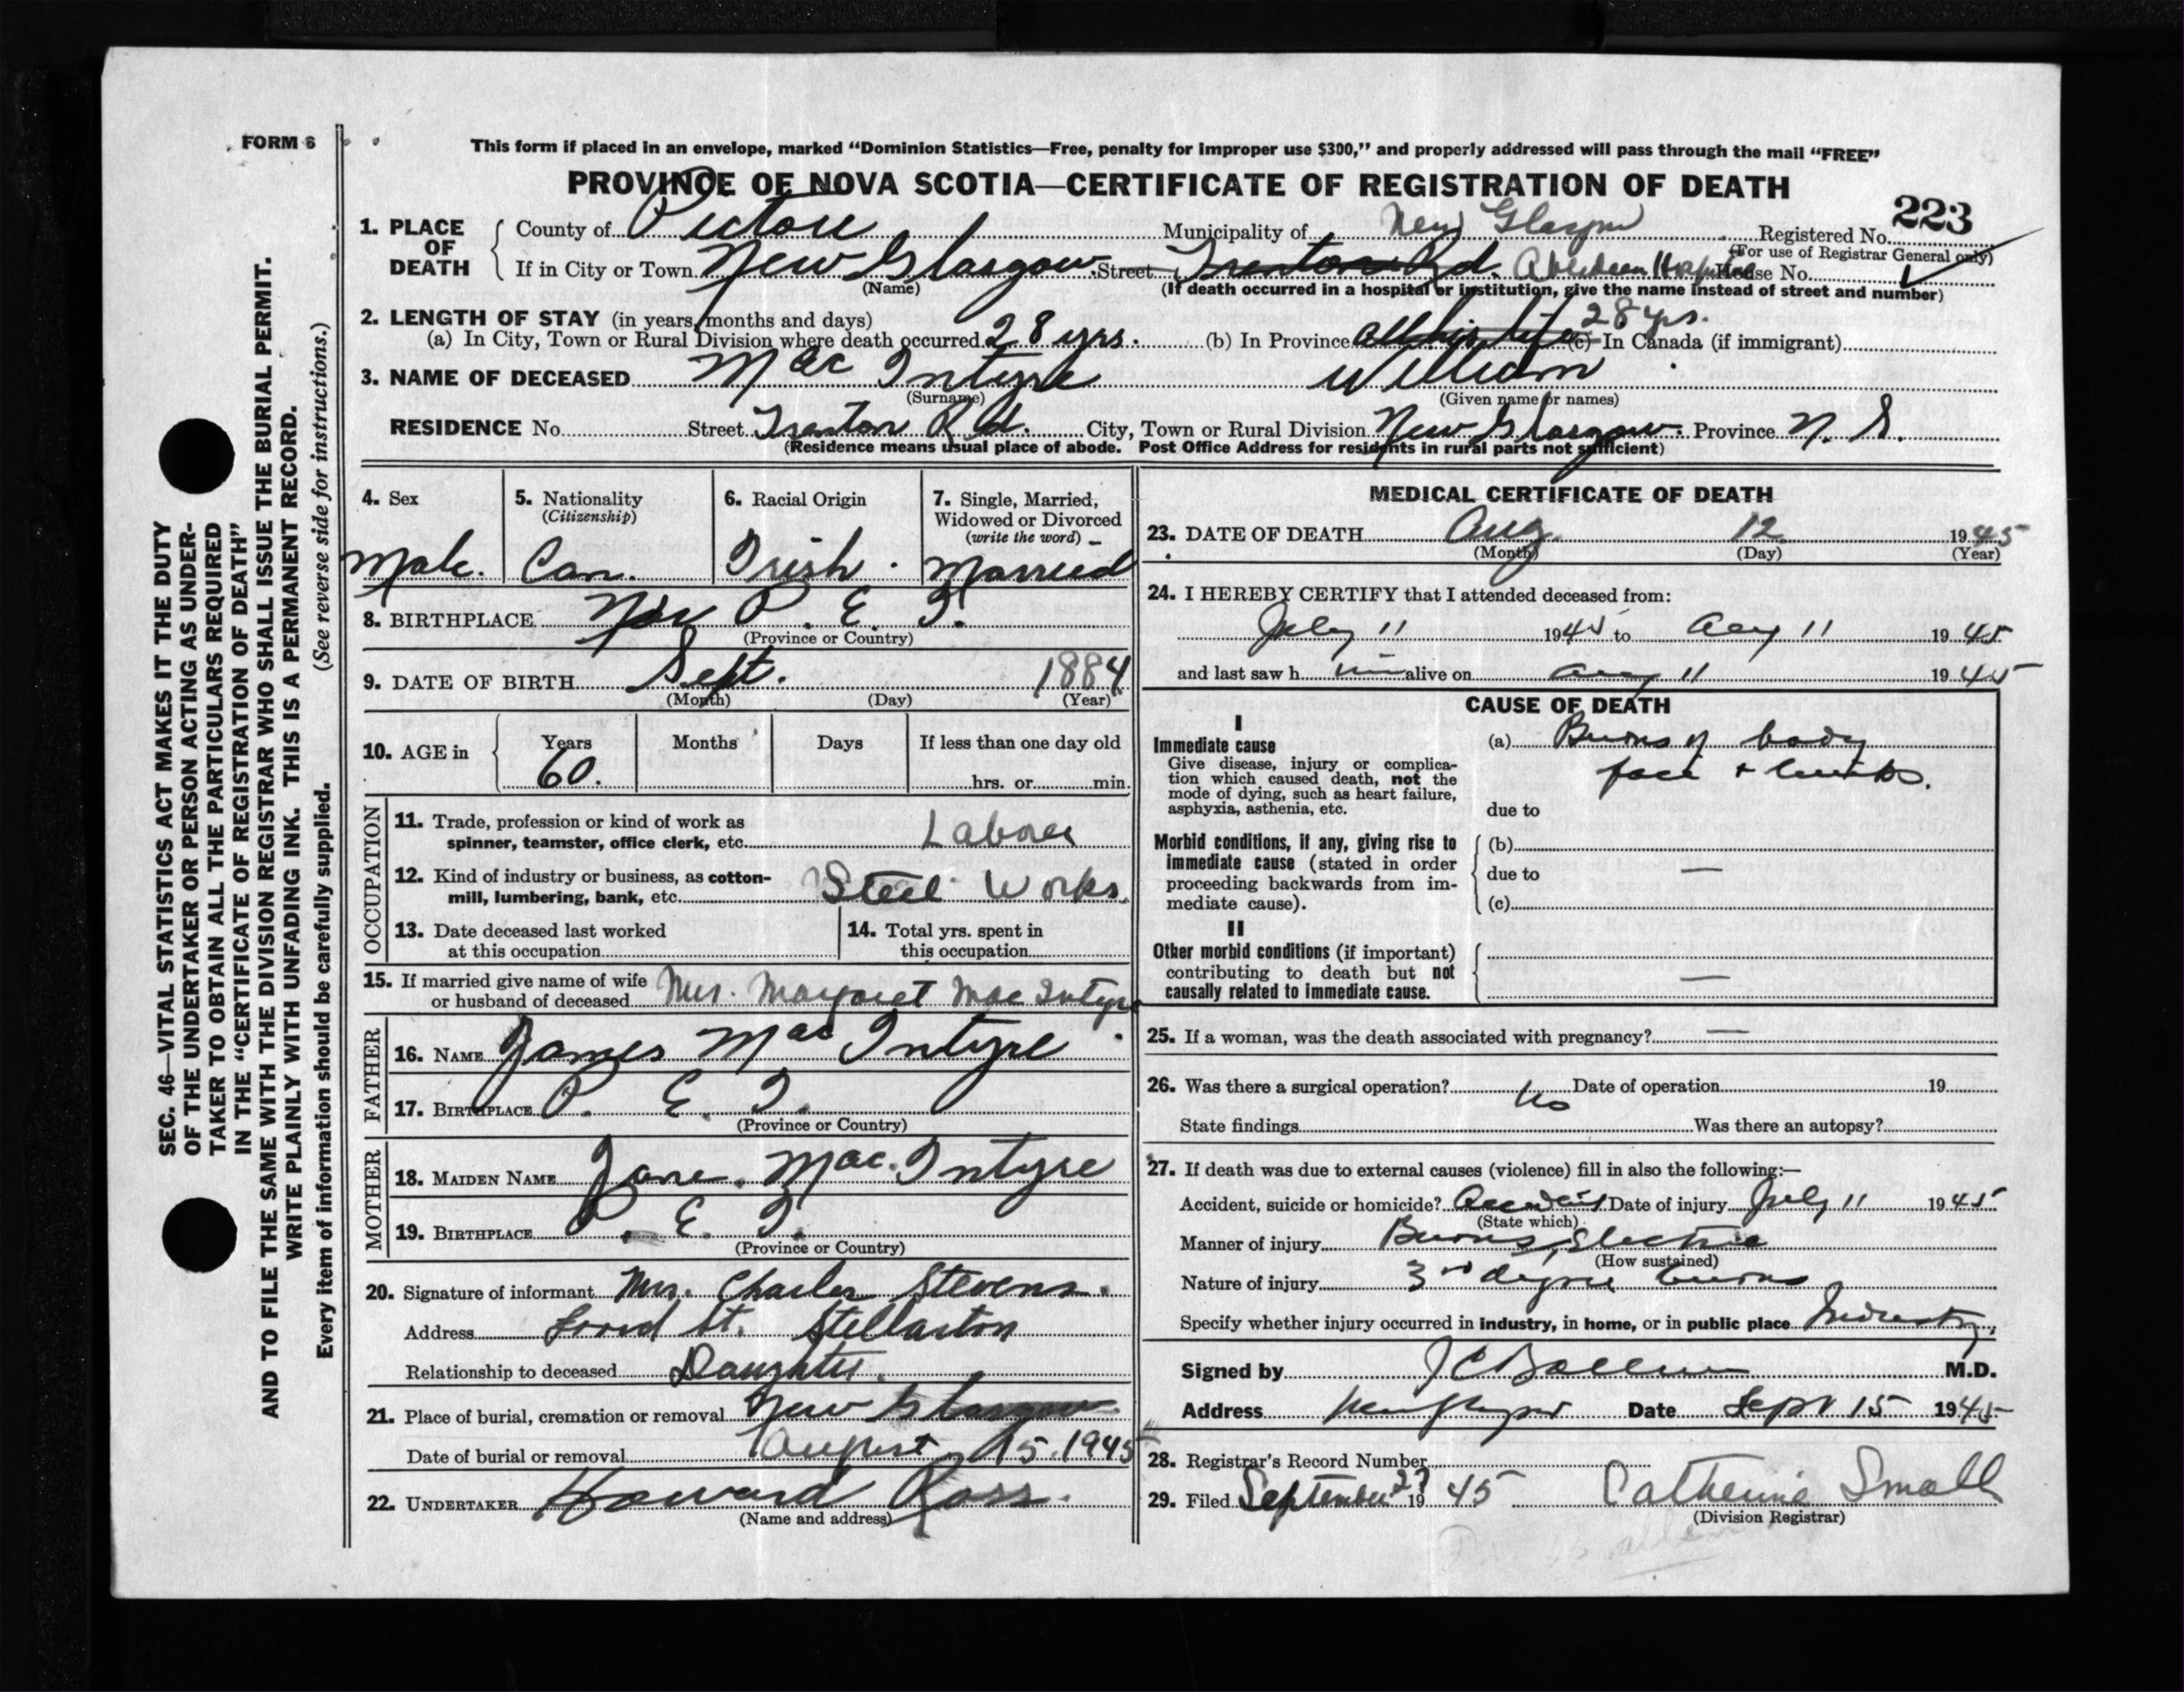 FORM 6
This form if placed in an envelope, marked “Dominion Statistics—Free, penalty for improper use $300,” and properly addressed will pass through the mail “FREE”
PROVINCE OF NOVA SCOTIA—CERTIFICATE OF REGISTRATION OF DEATH
223
1. PLACE OF DEATH
County of Pictou Municipality of New Glasgow Registered No.
(For use of Registrar General only)
If in City or Town New Glasgow Street Trenton Rd. Aberdeen Hospital House No.
(Name) (If death occurred in a hospital or institution, give the name instead of street and number)
2. LENGTH OF STAY (in years, months and days)
(a) In City, Town or Rural Division where death occurred 28 yrs. (b) In Province all his life 28 yrs. (c) In Canada (if immigrant)
3. NAME OF DECEASED Mac Intyre William
(Surname) (Given name or names)
RESIDENCE No. Street Trenton Rd. City, Town or Rural Division New Glasgow. Province N. S.
(Residence means usual place of abode. Post Office Address for residents in rural parts not sufficient)
4. Sex 5. Nationality (Citizenship) 6. Racial Origin 7. Single, Married, Widowed or Divorced (write the word)
Male. Can. Irish. Married
8. BIRTHPLACE P. E. I.
(Province or Country)
9. DATE OF BIRTH Sept. 1884
(Month) (Day) (Year)
10. AGE in Years Months Days If less than one day old
60. hrs. or min.
OCCUPATION
11. Trade, profession or kind of work as
spinner, teamster, office clerk, etc. Laborer
12. Kind of industry or business, as cotton-
mill, lumbering, bank, etc. Steel Works.
13. Date deceased last worked at this occupation
14. Total yrs. spent in this occupation
15. If married give name of wife
or husband of deceased Mrs. Margaret Mac Intyre
FATHER
16. NAME James Mac Intyre
17. BIRTHPLACE P. E. I.
(Province or Country)
MOTHER
18. MAIDEN NAME Jane. Mac. Intyre
19. BIRTHPLACE P. E. I.
(Province or Country)
20. Signature of informant Mrs. Charles Stevens.
Address Foord St. Stellarton
Relationship to deceased Daughter.
21. Place of burial, cremation or removal New Glasgow
Date of burial or removal August 15. 1945
22. UNDERTAKER Howard Ross.
(Name and address)
MEDICAL CERTIFICATE OF DEATH
23. DATE OF DEATH Aug. 12 1945
(Month) (Day) (Year)
24. I HEREBY CERTIFY that I attended deceased from:
July 11 1945 to Aug 11 1945
and last saw him alive on Aug 11 1945
CAUSE OF DEATH
I
Immediate cause (a) Burns of body
Give disease, injury or complica- face + limbs.
tion which caused death, not the
mode of dying, such as heart failure,
asphyxia, asthenia, etc. due to
Morbid conditions, if any, giving rise to (b)
immediate cause (stated in order
proceeding backwards from im- due to —
mediate cause). (c)
II
Other morbid conditions (if important)
contributing to death but not —
causally related to immediate cause.
25. If a woman, was the death associated with pregnancy? —
26. Was there a surgical operation? No Date of operation 19
State findings Was there an autopsy?
27. If death was due to external causes (violence) fill in also the following:—
Accident, suicide or homicide? Accident Date of injury July 11 1945
(State which)
Manner of injury Burns, Electric
(How sustained)
Nature of injury 3rd degree burns
Specify whether injury occurred in industry, in home, or in public place Industry.
Signed by M.D.
Address New Glasgow Date Sept 15 1945
28. Registrar's Record Number
29. Filed September 27 1945 Catherine Small
(Division Registrar)
SEC. 46—VITAL STATISTICS ACT MAKES IT THE DUTY
OF THE UNDERTAKER OR PERSON ACTING AS UNDER-
TAKER TO OBTAIN ALL THE PARTICULARS REQUIRED
IN THE “CERTIFICATE OF REGISTRATION OF DEATH”
AND TO FILE THE SAME WITH THE DIVISION REGISTRAR WHO SHALL ISSUE THE BURIAL PERMIT.
WRITE PLAINLY WITH UNFADING INK. THIS IS A PERMANENT RECORD.
Every item of information should be carefully supplied. (See reverse side for instructions.)